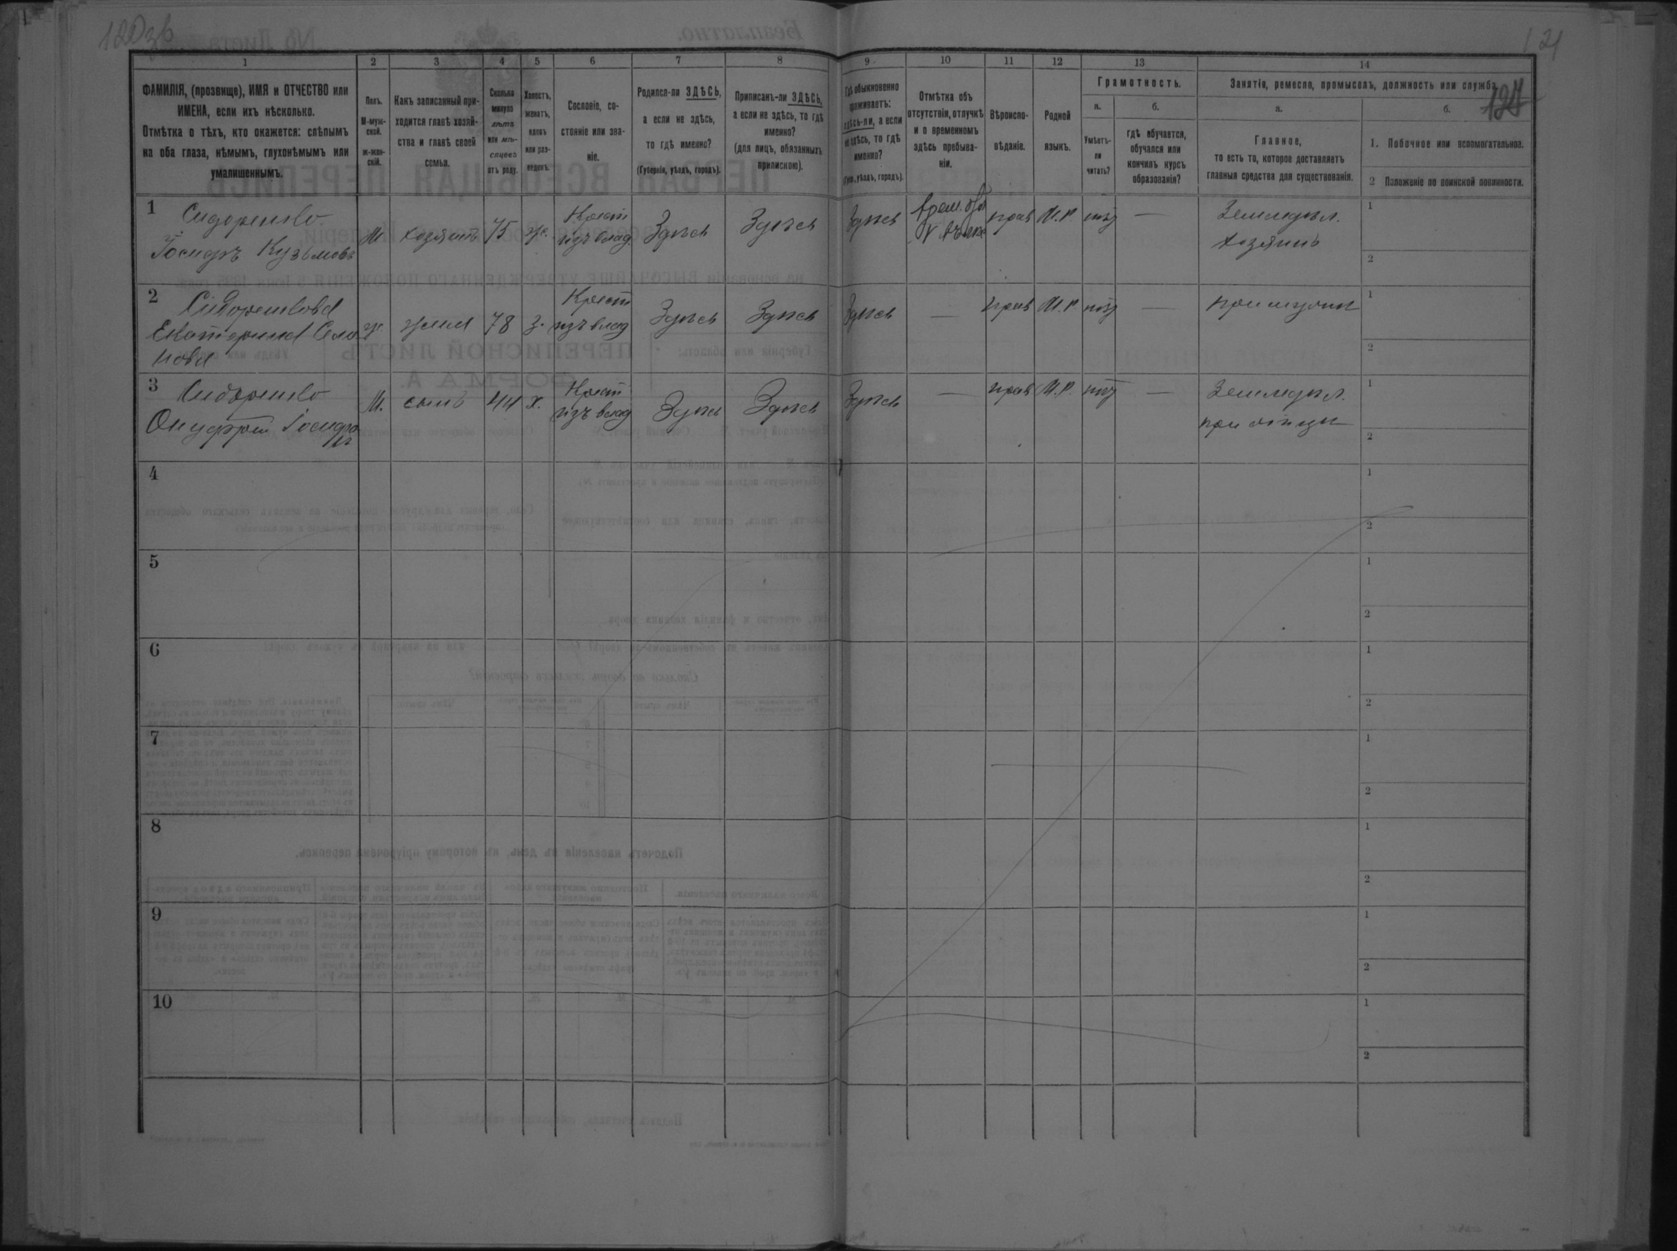 120 зв
121
127
1 2 3 4 5 6 7 8 9 10 11 12 13 14
ФАМИЛІЯ, (прозвище), ИМЯ и ОТЧЕСТВО или
ИМЕНА, если ихъ нѣсколько.
Отмѣтка о тѣхъ, кто окажется: слѣпымъ
на оба глаза, нѣмымъ, глухонѣмымъ или
умалишеннымъ.
Полъ.
М-муж-
ской.
ж-жен-
скій.
Какъ записанный при-
ходится главѣ хозяй-
ства и главѣ своей
семьи.
Сколько
минуло
лѣтъ
или мѣ-
сяцевъ
отъ роду.
Холостъ,
женатъ,
вдовъ
или раз-
веденъ.
Сословіе, со-
стояніе или зва-
ніе.
Родился-ли ЗДѢСЬ,
а если не здѣсь,
то гдѣ именно?
(Губернія, уѣздъ, городъ).
Приписанъ-ли ЗДѢСЬ,
а если не здѣсь, то гдѣ
именно?
(для лицъ, обязанныхъ
припискою).
Гдѣ обыкновенно
проживаетъ:
здѣсь-ли, а если
не здѣсь, то гдѣ
именно?
(Губ., уѣздъ, городъ).
Отмѣтка объ
отсутствіи, отлучкѣ
и о временномъ
здѣсь пребыва-
ніи.
Вѣроиспо-
вѣданіе.
Родной
языкъ.
Грамотность.
а.
Умѣетъ-
ли
читать?
б.
гдѣ обучается,
обучался или
кончилъ курсъ
образованія?
Занятія, ремесло, промыселъ, должность или служба.
а.
Главное,
то есть то, которое доставляетъ
главныя средства для существованія.
б.
1. Побочное или вспомогательное.
2 Положеніе по воинской повинности.
1 Сидоренко
Госифъ Кузьмовъ
М. хозяинъ 75 ж. Крест
изъ влад Здѣсь Здѣсь Здѣсь прав М.Р нѣт — Земледѣл.
хозяинъ
1
2
2 Сидоренкова
Екатерина Семе
нова
ж. жена 78 з. Крест
изъ влад Здѣсь Здѣсь Здѣсь — прав М.Р нѣт — при мужи
1
2
3 Сидоренко
Онуфрій Госифо
въ
М. сынъ 44 х. Крест
изъ влад Здѣсь Здѣсь Здѣсь — прав М.Р нѣт — Земледѣл.
при отцы
1
2
4
1
2
5
1
2
6
1
2
7
1
2
8
1
2
9
1
2
10
1
2